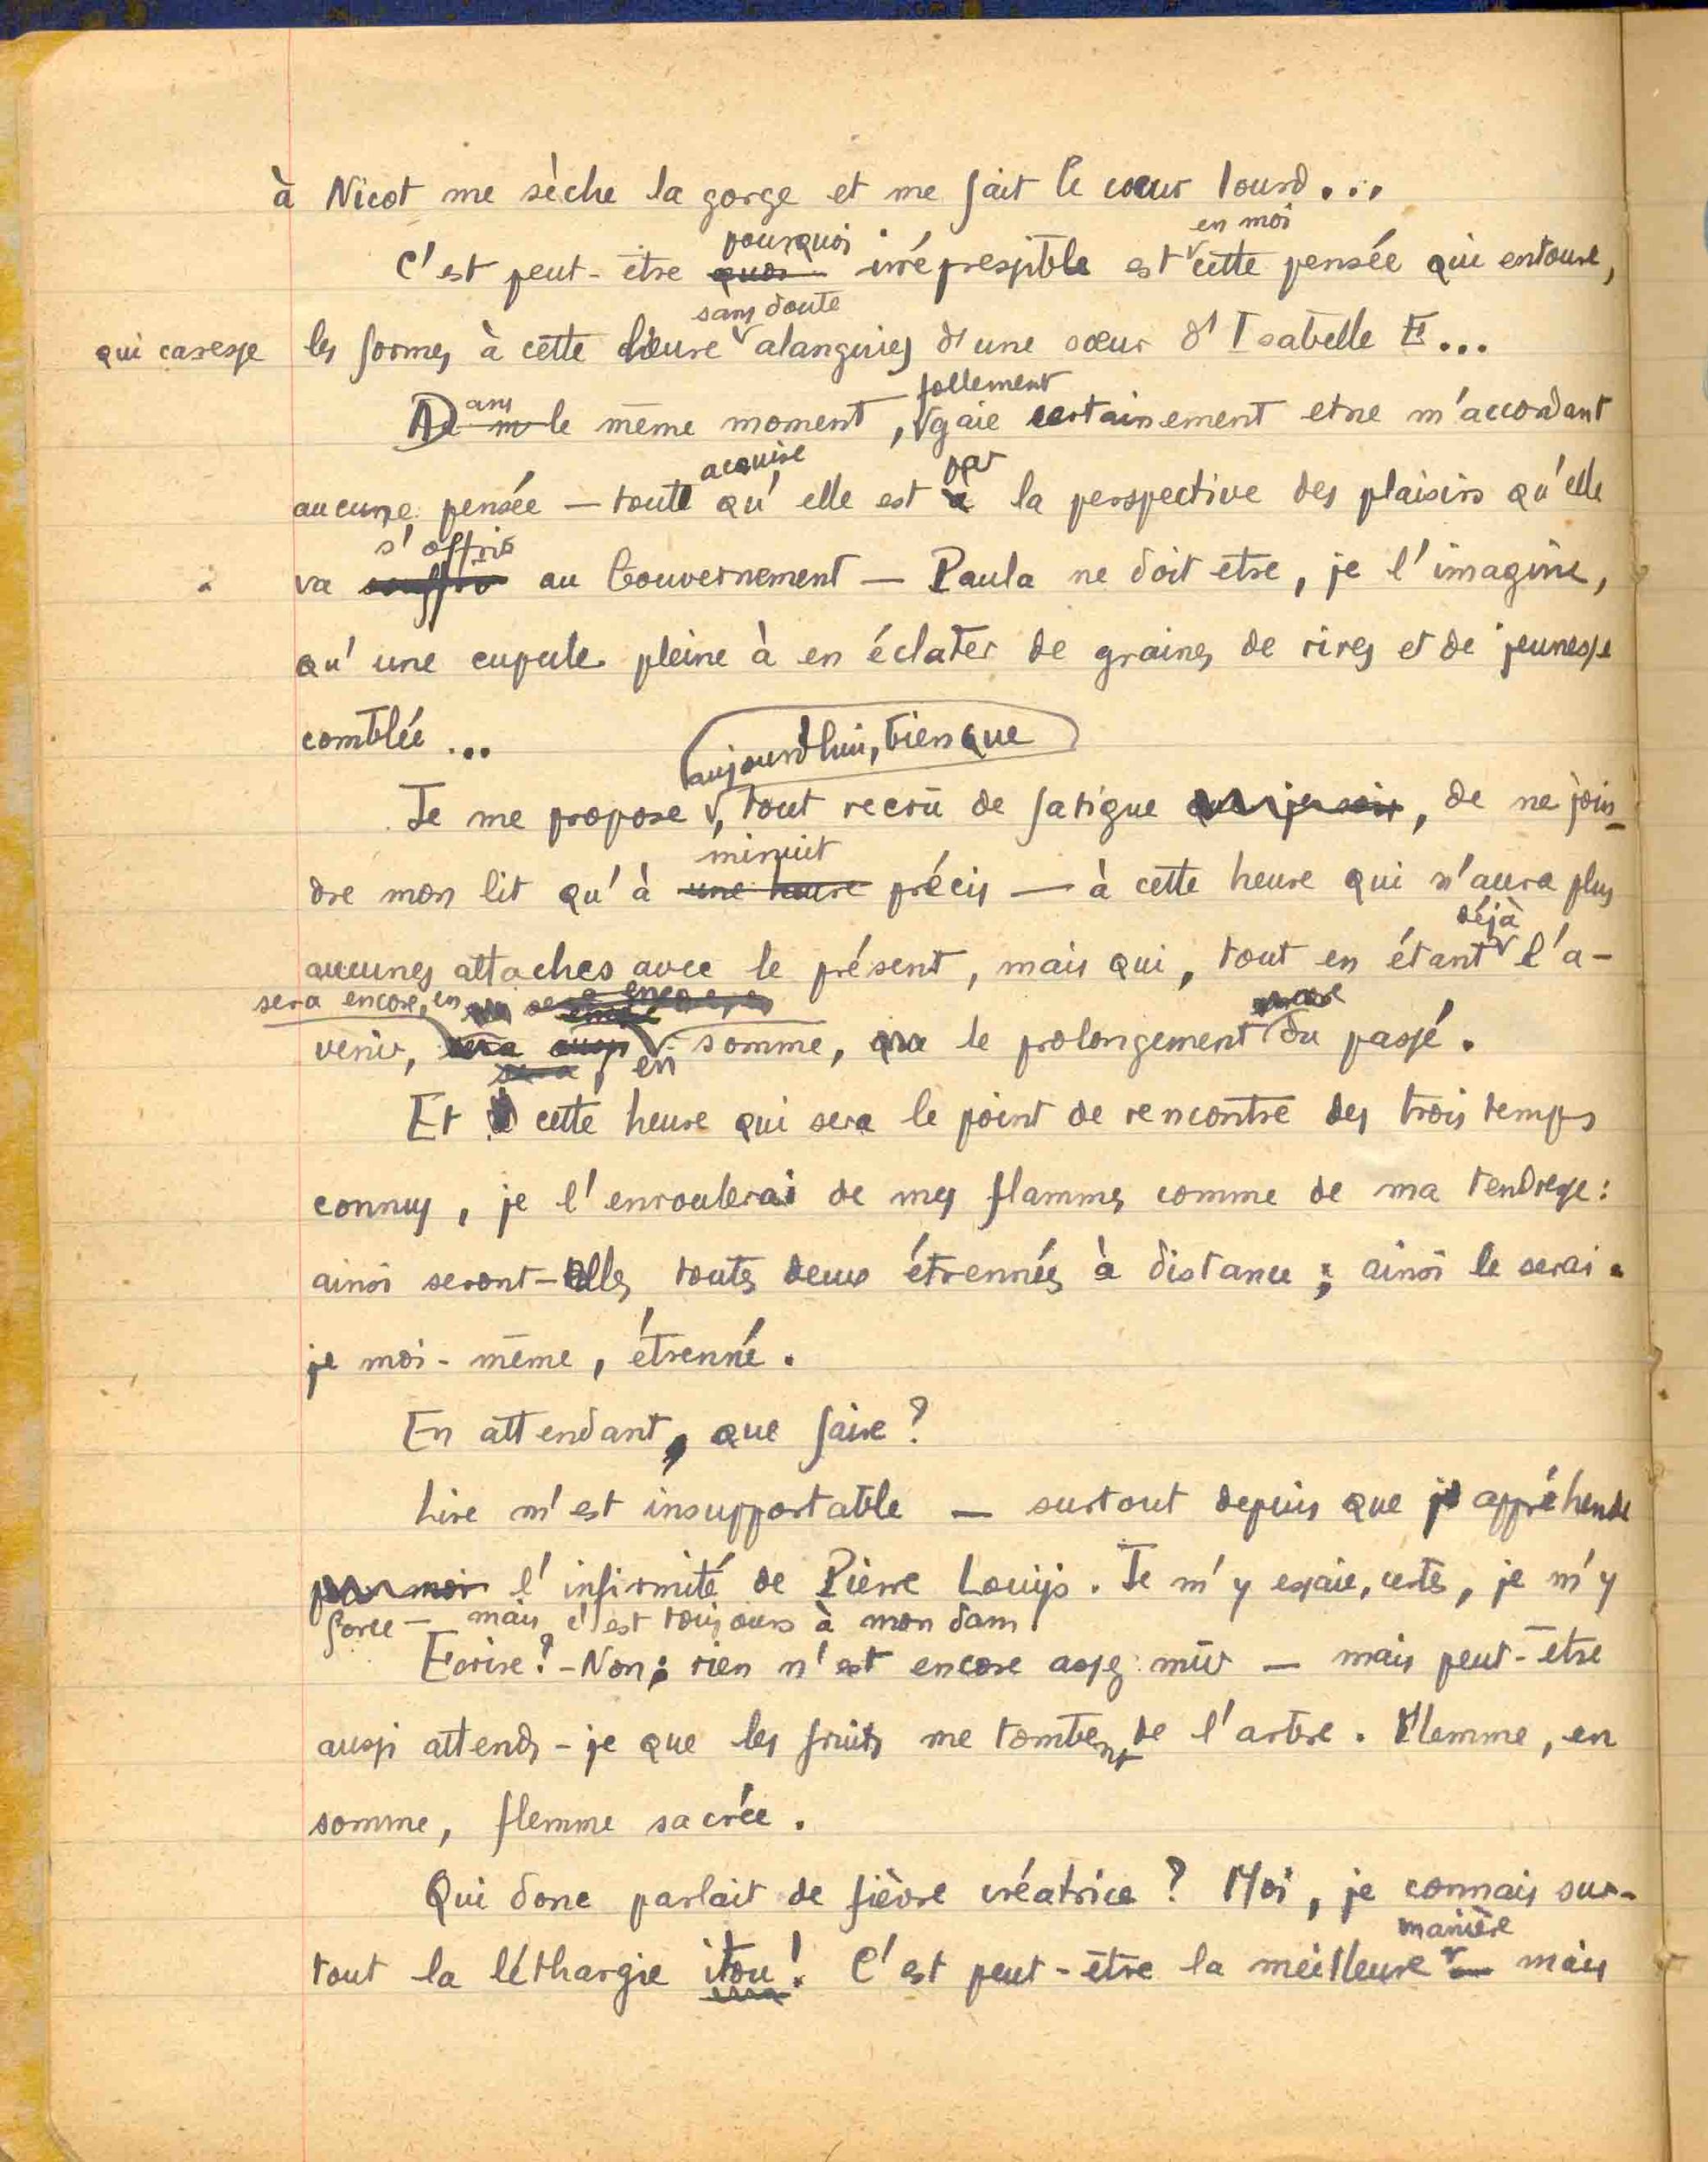 à Nicot me sèche la gorge et me fait le cœur lourd...
pourquoi
en moi
C'est peut-être quoi irrépressible est cette pensée qui entoure,
sans doute
qui caresse
les formes à cette heure alanguies d'une sœur d'Isabelle E...
follement
Dans le même moment, gaie certainement et ne m'accordant
acquise
par
aucune pensée — toute qu'elle est à la perspective des plaisirs qu'elle
s'offrir
va souffrir au Gouvernement — Paula ne doit être, je l'imagine,
qu'une cupule pleine à en éclater de graines de rires et de jeunesse
comblée...
aujourd'hui, bien que
Je me propose, tout recrû de fatigue que je sois, de ne join-
minuit
dre mon lit qu'à une heure précis — à cette heure qui n'aura plus
déjà
aucunes attaches avec le présent, mais qui, tout en étant l'a-
sera encore, en
encore
venir, sera aussi somme, que le prolongement du passé.
sera, en
Et cette heure qui sera le point de rencontre des trois temps
connus, je l'enroulerai de mes flammes comme de ma tendresse :
ainsi seront-elles toutes deux étrennées à distance ; ainsi le serai-
je moi-même, étrenné.
En attendant, que faire ?
Lire m'est insupportable — surtout depuis que je appréhende
pour moi l'infirmité de Pierre Louÿs. Je m'y essaie, certes, je m'y
force — mais c'est toujours à mon dam !
Ecrire ? - Non ; rien n'est encore assez mûr — mais peut-être
aussi attends-je que les fruits me tombent de l'arbre. Flemme, en
somme, flemme sacrée.
Qui donc parlait de fièvre créatrice ? Moi, je connais sur-
manière
tout la léthargie itou ! C'est peut-être la meilleure mais